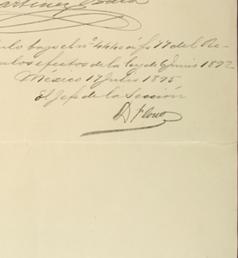 Martinez
culo bajo el nº 444 á fs 17 del Re-
los efectos de la ley de 6 Junio 1892
México 17 Julio 1895
El Jefe de la Sección
D. Flores